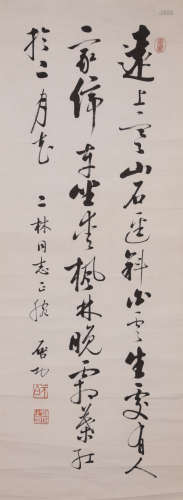 遠上寒山石逕斜白雲生處有人
家停車坐愛楓林晚霜葉紅
於二月花
二林同志正腕 启功